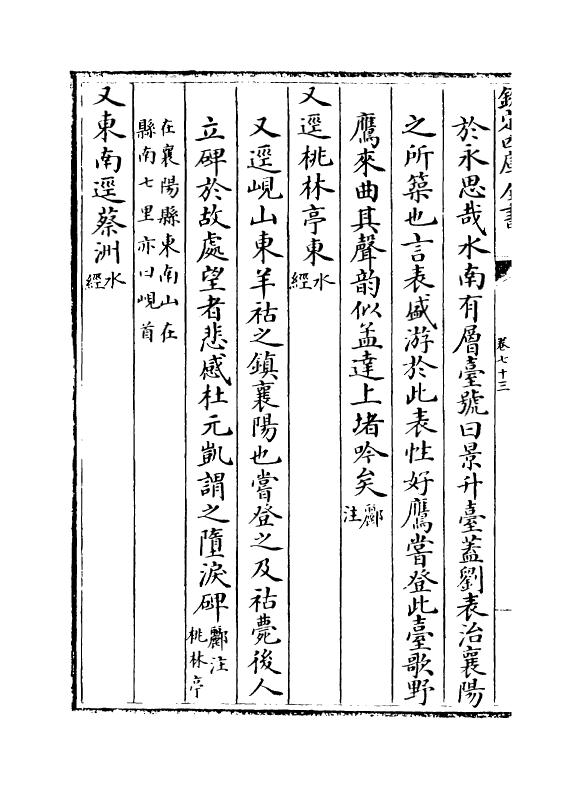 欽定四庫全書
卷七十三
於永思哉水南有層臺號曰景升臺蓋劉表治襄陽
之所築也言表盛游於此表性好鷹嘗登此臺歌野
鷹來曲其聲韵似孟達上堵吟矣酈注
又逕桃林亭東水經
又逕峴山東羊祜之鎮襄陽也嘗登之及祜薨後人
立碑於故處望者悲感杜元凱謂之墮淚碑酈注桃林亭
在襄陽縣東南山在
縣南七里亦曰峴首
又東南逕蔡洲水經